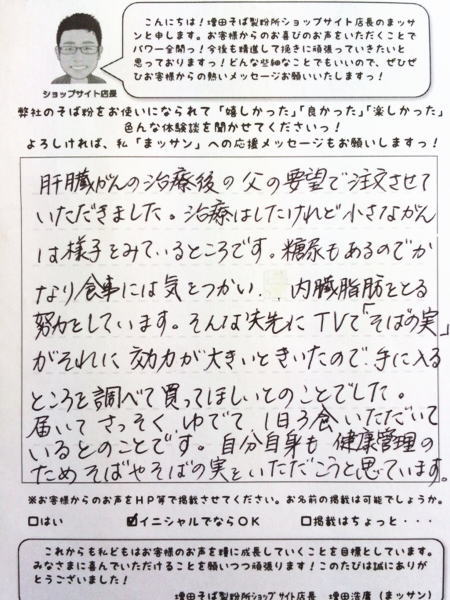 こんにちは!増田そば製粉所ショップサイト店長のまッサ
ンと申します。お客様からのお喜びのお声をいただくことで
パワー全開っ!今後も精進して挽きに頑張っていきたいと
思っておりますっ!どんな些細なことでもいいので、ぜひぜ
ひお客様からの熱いメッセージお願いいたしますっ!
ショップサイト店長
弊社のそば粉をお使いになられて「嬉しかった」「良かった」「楽しかった」
色んな体験談を聞かせてくださいっ!
よろしければ、私「まッサン」への応援メッセージもお願いしますっ!
肝臓がんの治療後の父の要望で注文させて
いただきました。治療はしたけれど小さながん
は様子をみているところです。糖尿もあるのでか
なり食事には気をつかい、内臓脂肪をとる
努力をしています。そんな矢先にTVで「そばの実」
がそれに効力が大きいときいたので、手に入る
ところを調べて買ってほしいとのことでした。
届いてさっそくゆでて、1日3食いただいて
いるとのことです。自分自身も健康管理の
ためそばやそばの実をいただこうと思っています。
※お客様からのお声をHP等で掲載させてください。お名前の掲載は可能でしょうか。
□はい ☑イニシャルでならOK □掲載はちょっと・・・
これからも私どもはお客様のお声を糧に成長していくことを目標としています。
みなさまに喜んでいただけることを願いつつ頑張ります!このたびは誠にありが
とうございました!
増田そば製粉所ショップサイト店長 増田浩庸(まッサン)